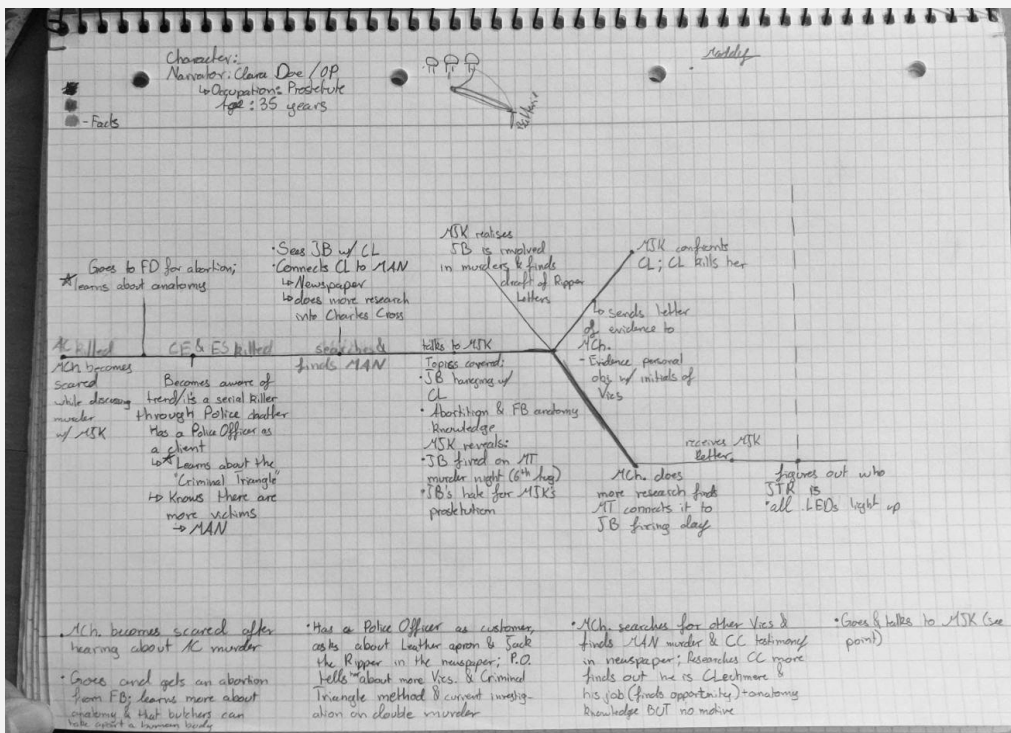 Character:
Narrator: Clara Doe / OP
↳ Occupation: Prostetute
Age: 35 years
- Facts
Battery
Maddy
Goes to FD for abortion;
☆ learns about anatomy
• Sees JB w/ CL
• Connects CL to MAN
↳ Newspaper
↳ does more research
into Charles Cross
MJK realises
JB is involved
in murders & finds
draft of Ripper
Letters
MJK confronts
CL; CL kills her
↳ sends letter
of evidence to
MCh.
- Evidence personal
obj w/ initials of
Vics
AC killed
MCh becomes
scared
while discussing
murder
w/ MJK
CE & ES killed
Becomes aware of
trend/it's a serial killer
through Police chatter
Has a Police Officer as
a client
↳☆ Learns about the
"Criminal Triangle"
↳ Knows there are
more victims
→ MAN
searches &
finds MAN
talks to MJK
Topics covered:
• JB hanging w/
CL
• Abortition & FB anatomy
knowledge
MJK reveals:
• JB fired on MT
murder night (6th Aug)
• JB's hate for MJK's
prostetution
MCh. does
more research finds
MT connects it to
JB firing day
receives MJK
letter
figures out who
JTR is
• all LEDs light up
• MCh. becomes scared after
hearing about AC murder
• Goes and gets an abortion
from FB; learns more about
anatomy & that butchers can
take apart a human body
• Has a Police Officer as customer,
asks about Leather apron & Jack
the Ripper in the newspaper; P.O.
tells about more Vics. & Criminal
Triangle method & current investig-
ation on double murder
• MCh. searches for other Vics &
finds MAN murder & CC testimony
in newspaper; Researches CC more
finds out he is CLechmere &
his job (finds opportunity) + anatomy
knowledge BUT no motive
• Goes & talks to MJK (see
point)